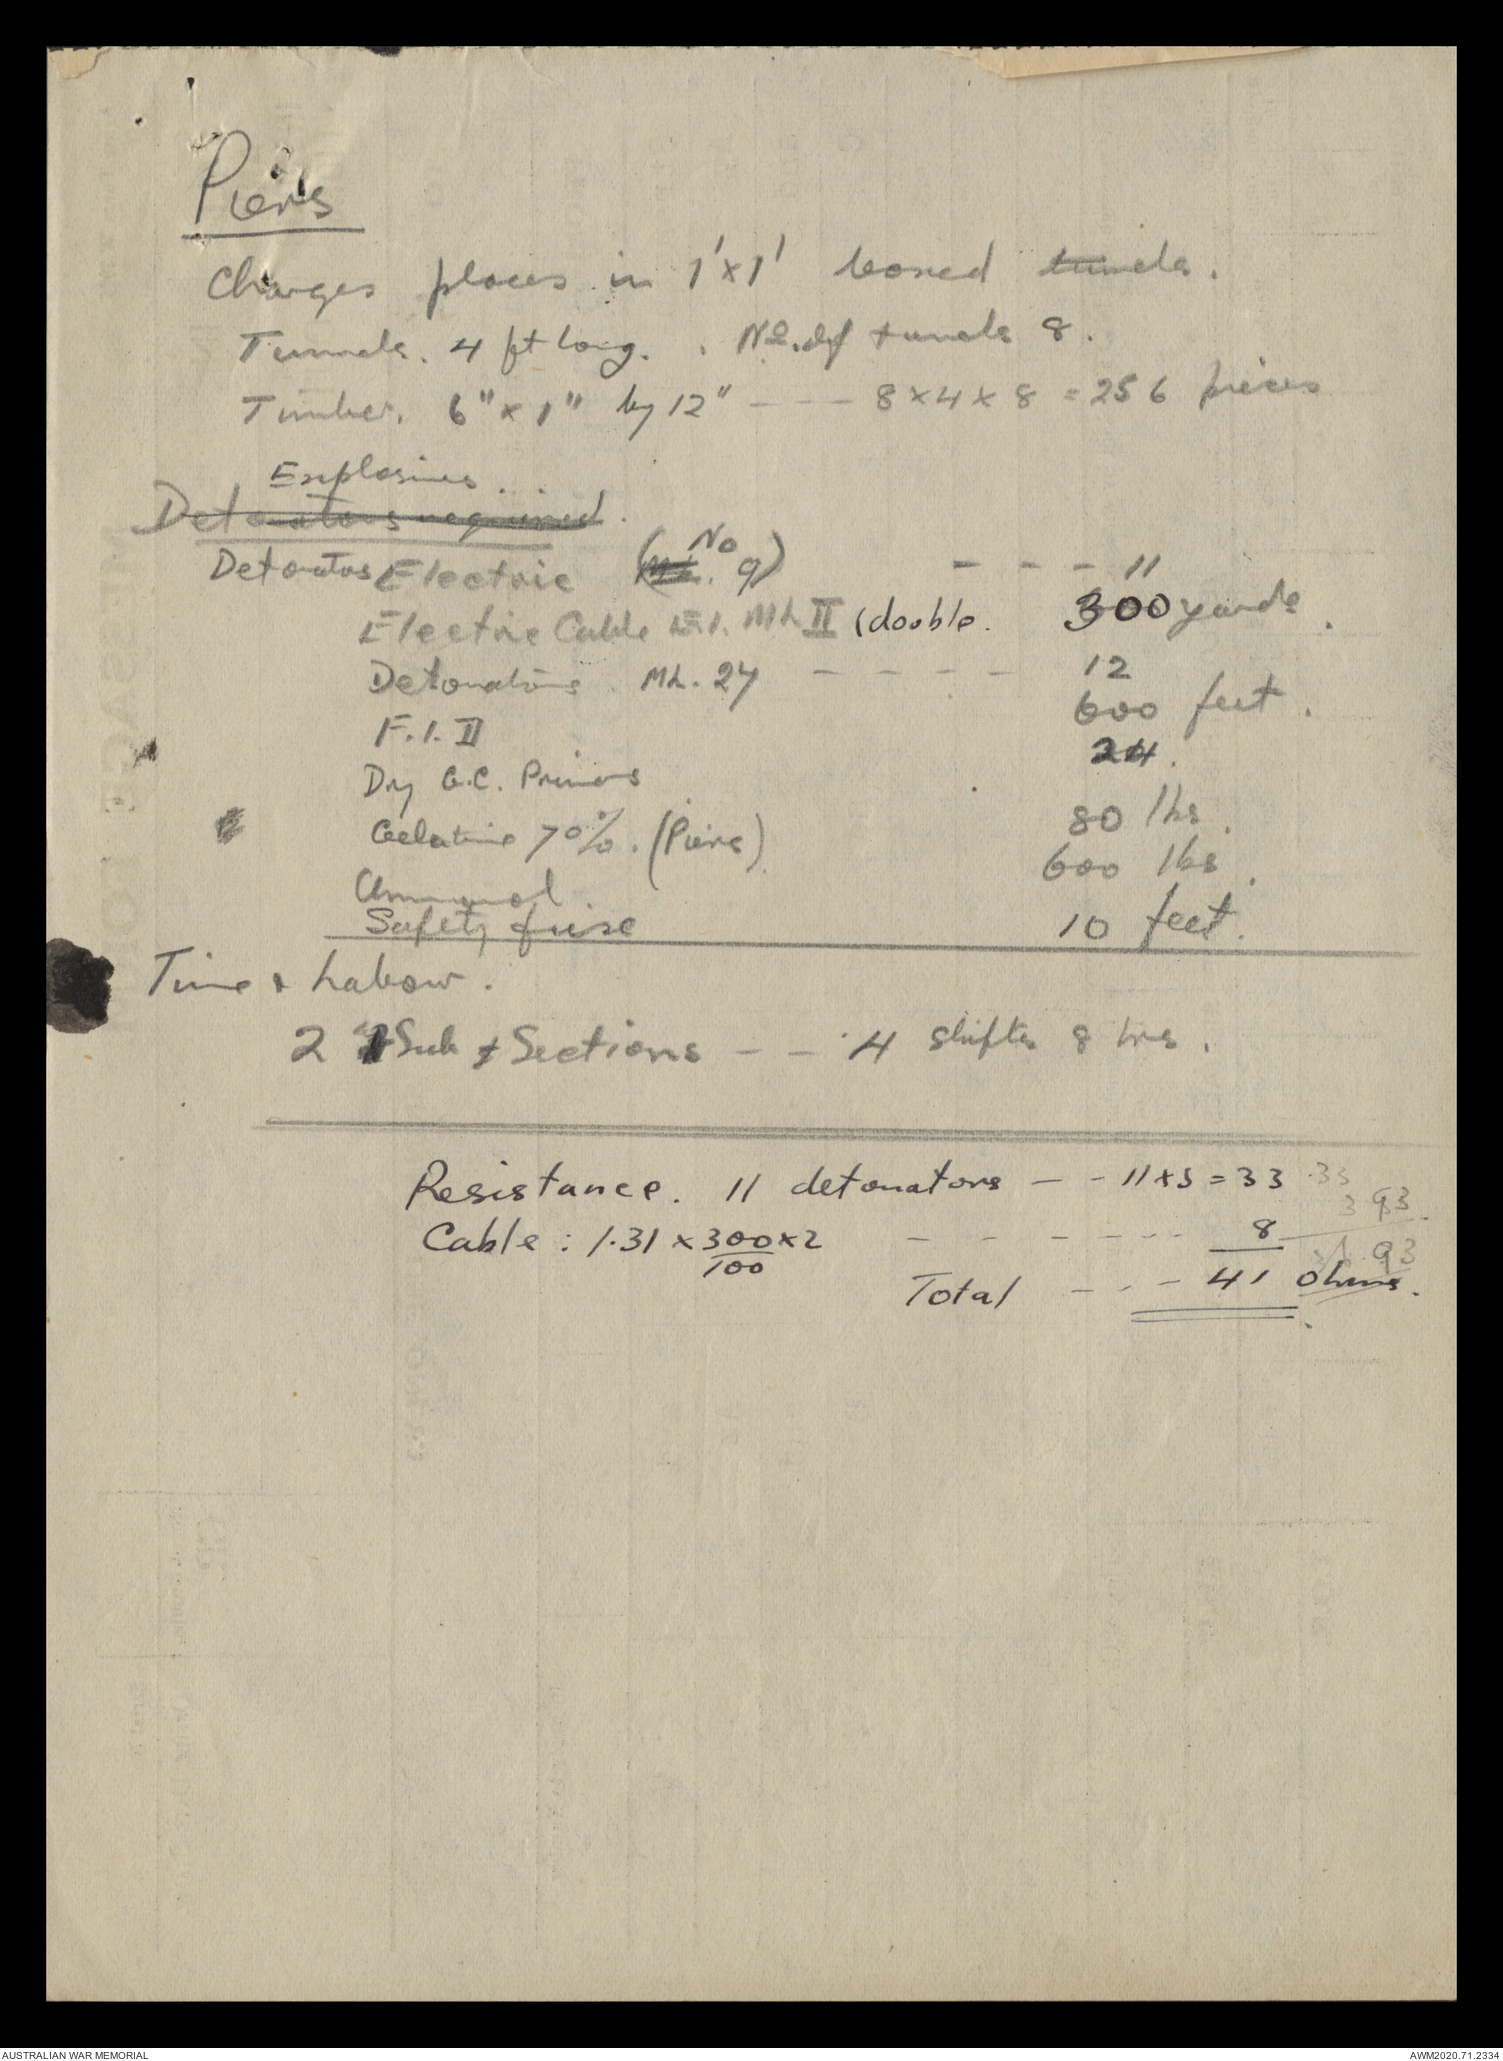 Piers
Charges places in 1' x 1' boxed tunnels.
Tunnels. 4 ft long. No. of tunnels 8.
Timber. 6" x 1" by 12" - - - - 8 x 4 x 8 = 256 pieces
Explosives.
Detonators required.
Detonators Electric (No 9) - - - - 11
Electric Cable E.1. Mk II (double. 300 yards.
Detonators. Mk. 27 - - - - - 12
F.I. II 600 feet.
Dry G.C. Primers 24.
Gelatine 70%. (Piers) 80 lbs.
Ammonal 600 lbs.
Safety fuse 10 feet.
Time & Labour.
2 Sub Sections - - - 4 shifts 8 hrs.
Resistance. 11 detonators - - - 11 x 3 = 33 .33
3 93
Cable : 1.31 x 300 x 2 - - - - - - - 8
100
93
Total - - - 41 ohms.
AUSTRALIAN WAR MEMORIAL AWM2020.71.2334